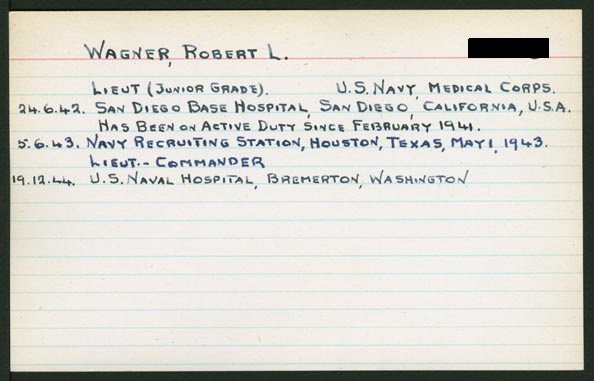 WAGNER, ROBERT L.
LIEUT (JUNIOR GRADE). U.S. NAVY MEDICAL CORPS.
24.6.42. SAN DIEGO BASE HOSPITAL, SAN DIEGO, CALIFORNIA, U.S.A.
HAS BEEN ON ACTIVE DUTY SINCE FEBRUARY 1941.
5.6.43. NAVY RECRUITING STATION, HOUSTON, TEXAS, MAY 1, 1943.
LIEUT.-COMMANDER
19.12.44. U.S. NAVAL HOSPITAL, BREMERTON, WASHINGTON